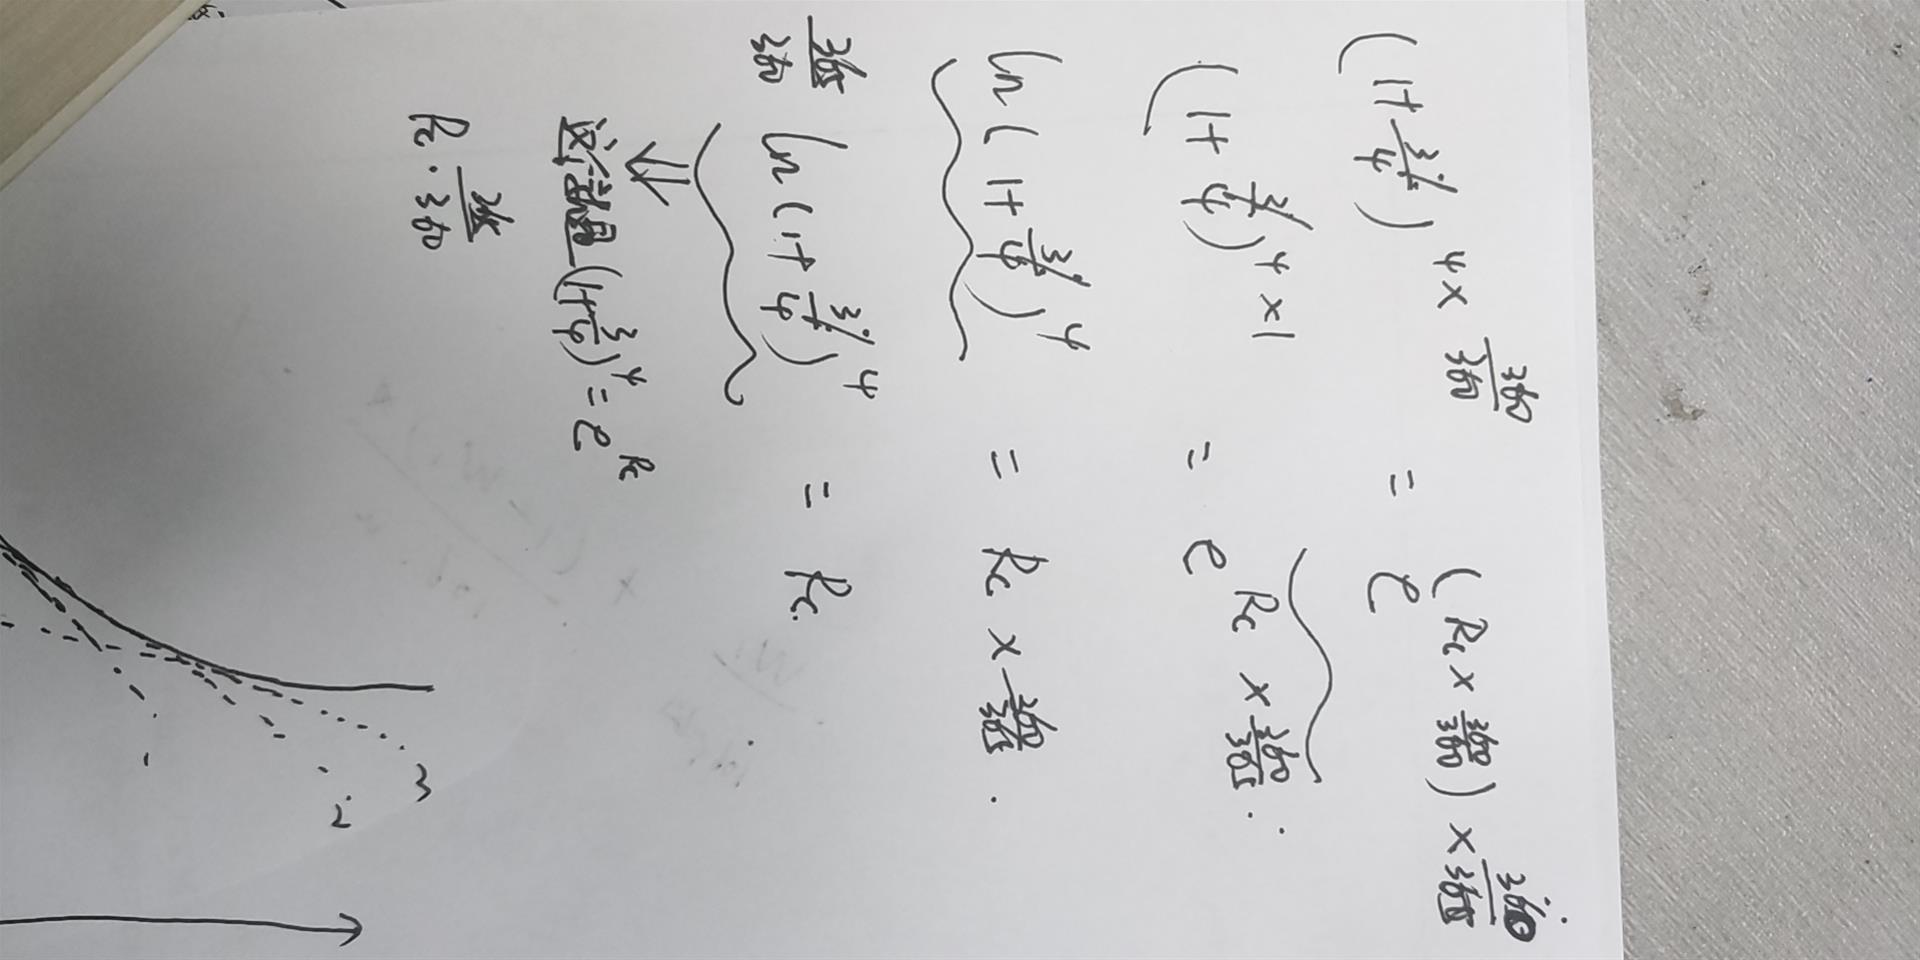 (1+3%/4)^4×360/360 = e^(Rc×360/360)×360/365
(1+3%/4)^4×1 = e^Rc×360/365.
ln(1+3%/4)^4 = Rc×360/365.
365/360 ln(1+3%/4)^4 = Rc.
⇓
(1+3/4)^4 = e^Rc
Rc·365/360
3
2